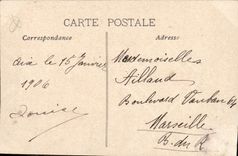 CARTE POSTALE
Correspondance
Adresse
Aix le 15 Janvier
1906
Louise
Mesdemoiselles
Aillaud
Boulevard Vauban 64
Marseille
B. du R.